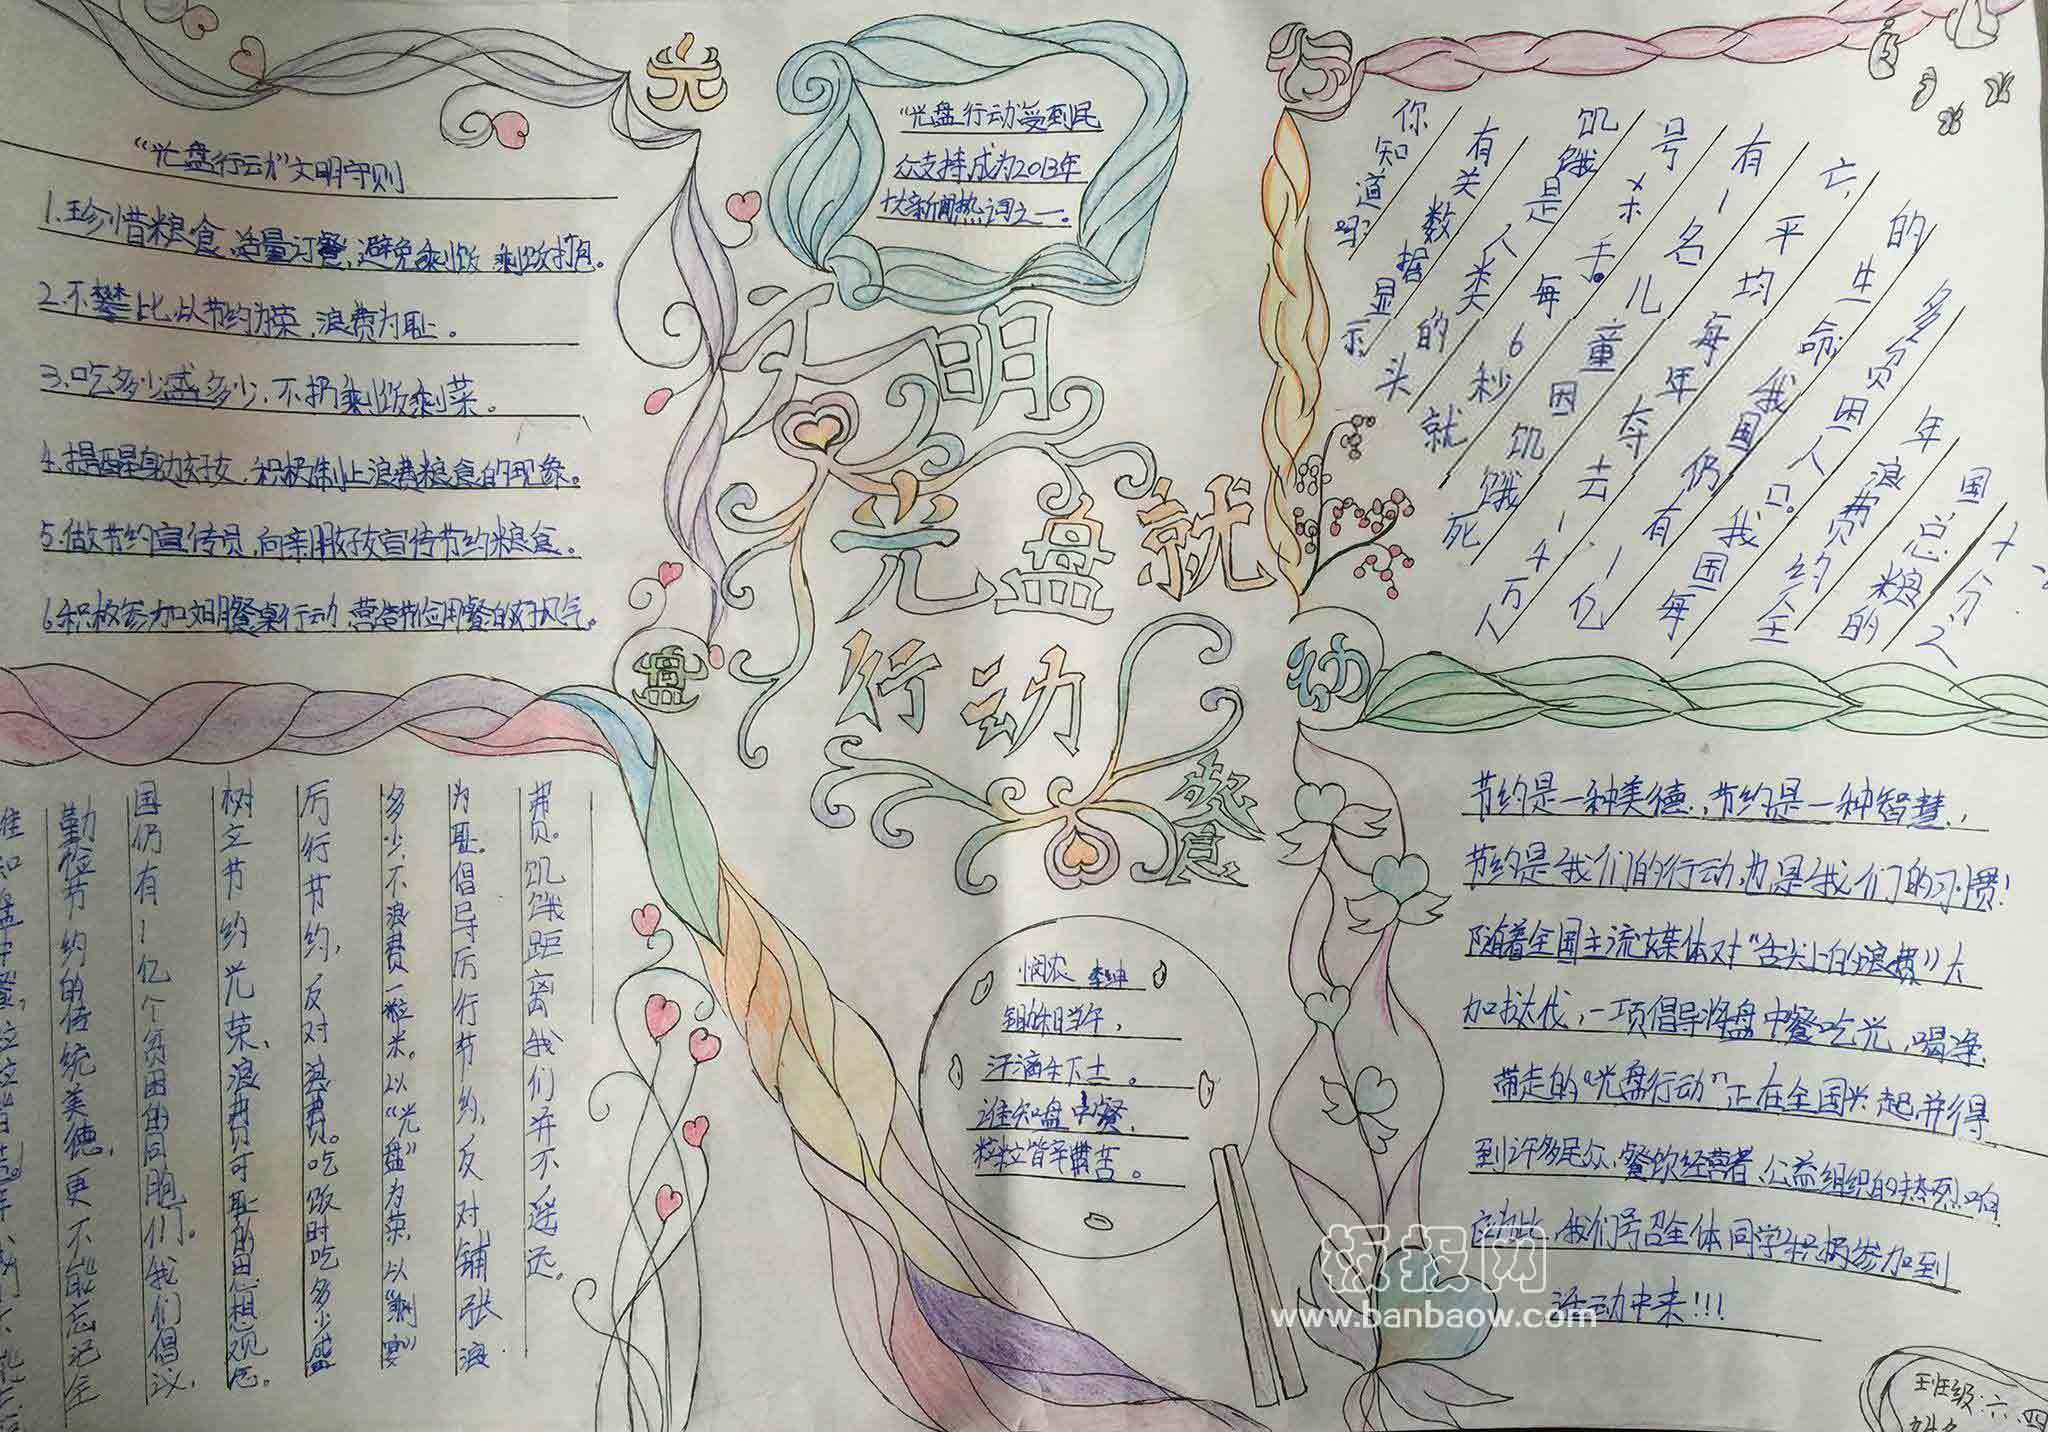 光
盘
行
动
文明
光盘就
行动
餐
"光盘行动"文明守则
1.珍惜粮食,适量订餐,避免剩饭,剩饭打包。
2.不攀比,以节约为荣,浪费为耻。
3.吃多少盛多少,不扔剩饭剩菜。
4.提醒身边好友,积极制止浪费粮食的现象。
5.做节约宣传员,向亲朋好友宣传节约粮食。
6.积极参加文明餐桌行动,营造节俭用餐的好风气。
"光盘行动"受到民
众支持成为2013年
十大新闻热词之一。
你知道吗?
有关数据显示
饥饿是人类的头
号杀手。每6秒就
有1名儿童因饥饿死
亡,平均每年夺去1.4万人
的生命,我国仍有1亿
多贫困人口。我国每
年浪费约全
国总粮的
十分之
谁知盘中餐,粒粒皆
勤俭节约的传统美德,更不能忘记全
国仍有1亿个贫困的同胞们。我们倡议,
树立节约光荣、浪费可耻的思想观念。
厉行节约,反对浪费。吃饭时吃多少盛
多少,不浪费一粒米。以"光盘"为荣,以"剩宴"
为耻。倡导厉行节约,反对铺张浪
费。饥饿距离我们并不遥远。
悯农 李绅
锄禾日当午,
汗滴禾下土。
谁知盘中餐,
粒粒皆辛苦。
节约是一种美德,节约是一种智慧,
节约是我们的行动,也是我们的习惯!
随着全国主流媒体对"舌尖上的浪费"大
加挞伐,一项倡导将盘中餐吃光,喝净
带走的"光盘行动"正在全国兴起并得
到许多民众,餐饮经营者,公益组织的热烈响
应为此,我们号召全体同学积极参加到
活动中来!!!
班级:六、四
姓名
板报网
www.banbaow.com